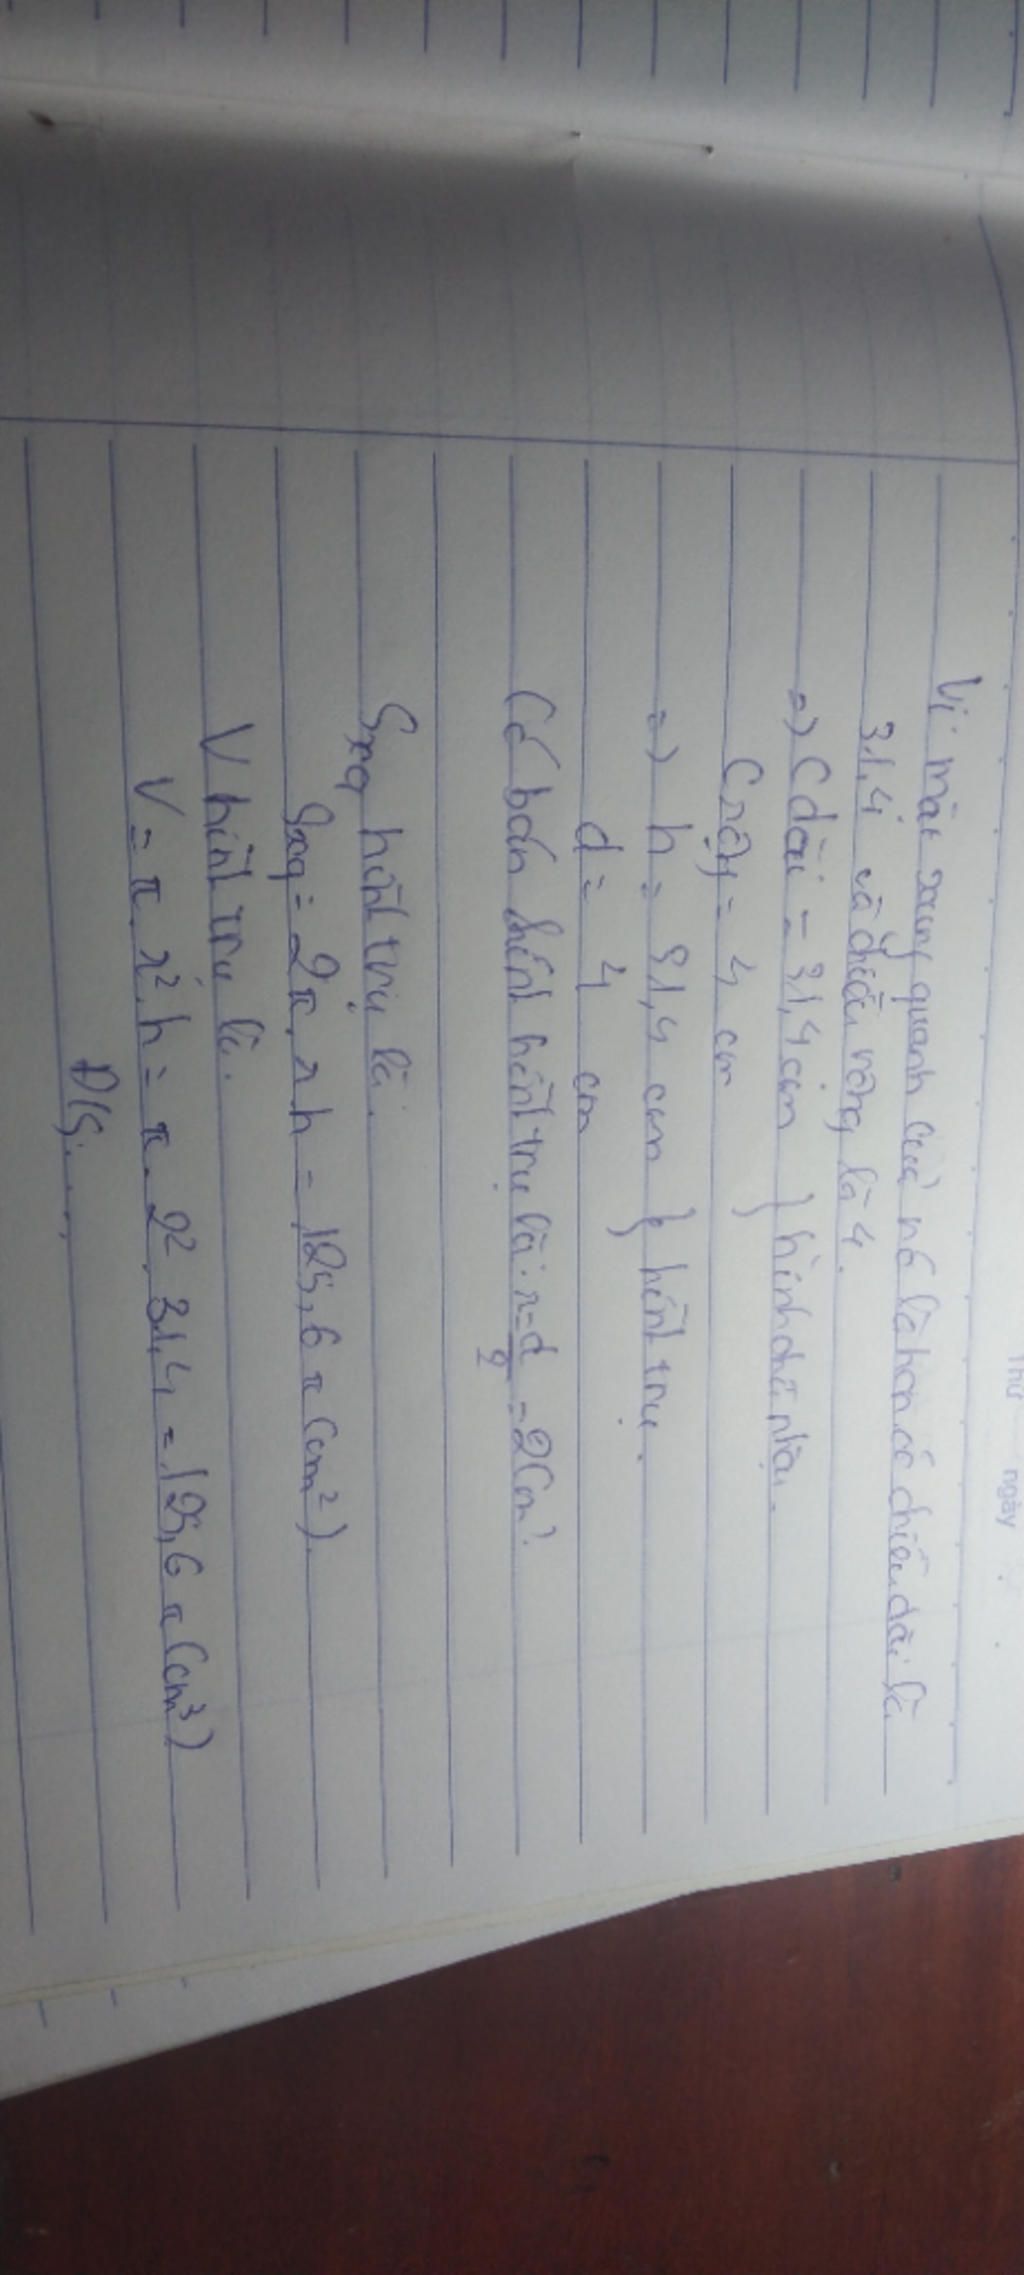 Thứ ngày
Vì mặt xung quanh của nó là hcn có chiều dài là
31,4 và chiều rộng là 4.
=> C dài = 31,4 cm } hình chữ nhật.
C rộng = 4 cm
=> h = 31,4 cm } hình trụ.
d = 4 cm
(Có bán kính hình trụ là: r = d/2 = 2 cm).
Sxq hình trụ là:
Sxq = 2π.r.h = 125,6 π (cm²).
V hình trụ là:
V = π.r².h = π.2².31,4 = 125,6 π (cm³)
Đ/S: ....